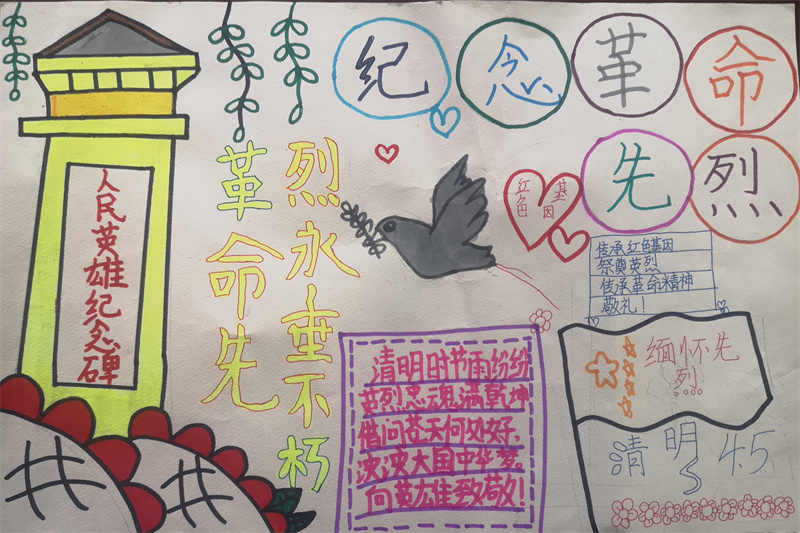 纪念革命
先烈
人民英雄纪念碑
革命先
烈永垂不朽
红色
基因
传承红色基因
祭奠英烈
传承革命精神
敬礼！
清明时节雨纷纷
英烈忠魂满乾坤
借问苍天何处好,
泱泱大国中华梦。
向英雄致敬！
缅怀先
烈
清明 4.5